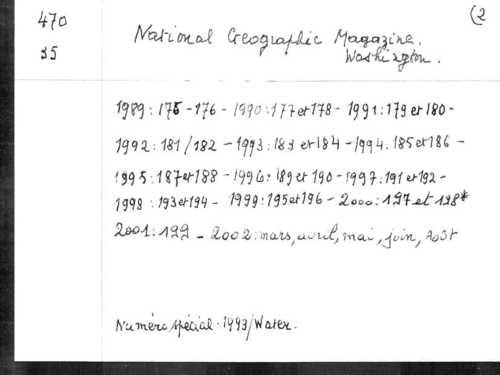 (2
470
35
National Geographic Magazine.
Washington.
1989: 175-176 - 1990: 177 et 178 - 1991: 179 et 180 -
1992: 181/182 - 1993: 183 et 184 - 1994: 185 et 186 -
1995: 187 et 188 - 1996: 189 et 190 - 1997: 191 et 192 -
1998: 193 et 194 - 1999: 195 et 196 - 2000: 197 et 198*
2001: 199 - 2002: mars, avril, mai, join, Août
Numéro spécial. 1993/Water.